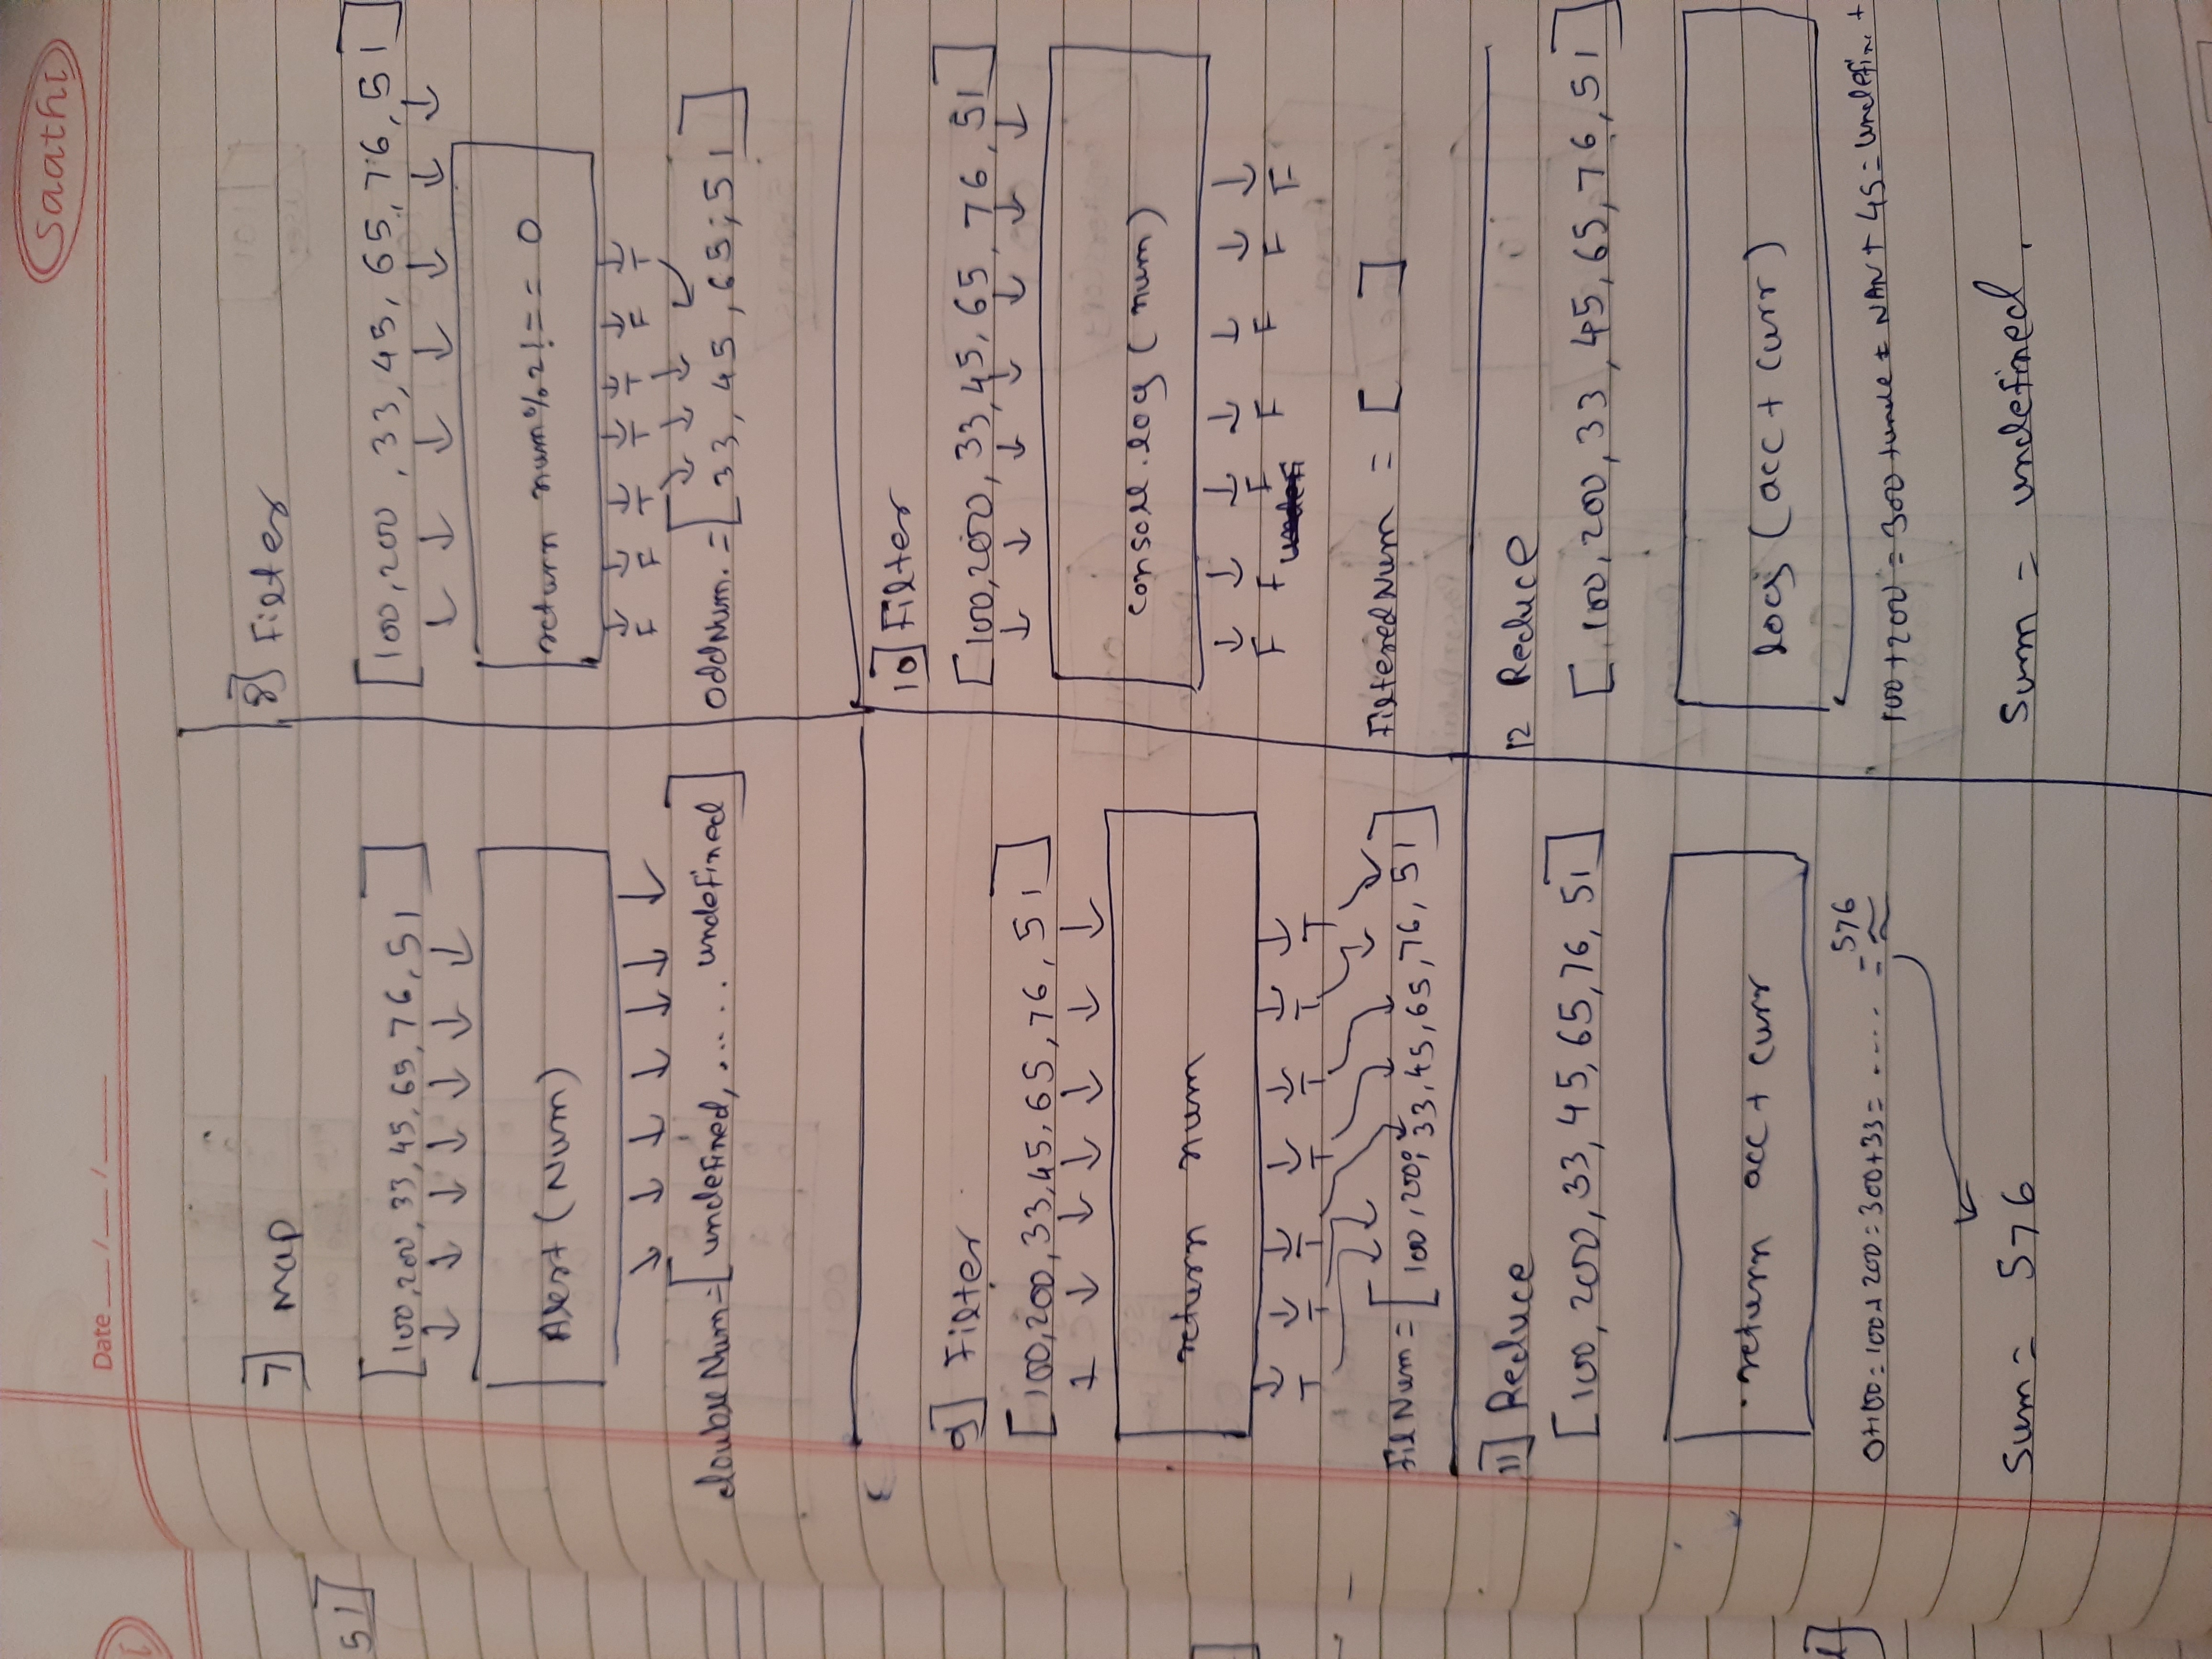 saathi
Date
51]
7] Map
[100, 200, 33, 45, 65, 76, 51]
Alert (Num)
doubleNum = [undefined, ..... undefined]
8] Filter
[100, 200, 33, 45, 65, 76, 51]
return num%2!== 0
F F T T T F T
OddNum. = [33, 45, 65, 51]
9] Filter
[100, 200, 33, 45, 65, 76, 51]
return num
T T T T T T T
FilNum = [100, 200, 33, 45, 65, 76, 51]
10] Filter
[100, 200, 33, 45, 65, 76, 51]
console.log (num)
F F F F F F F
FilteredNum = [ ]
11] Reduce
[100, 200, 33, 45, 65, 76, 51]
return acc + curr
0+100 = 100+200 = 300+33 = ..... = 576
Sum = 576
12 Reduce
[100, 200, 33, 45, 65, 76, 51]
log (acc + curr)
100+200 = 300 + unde = NAN + 45 = undefin +
Sum = undefined.